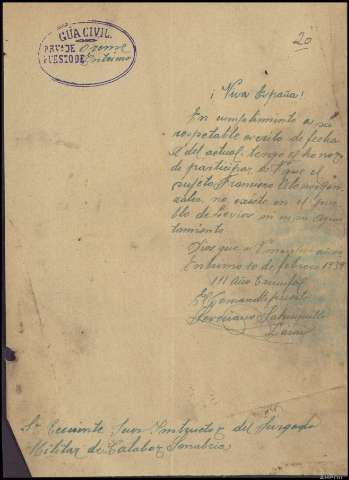 GUA CIVIL.
PRVA DE Orense
PUESTO DE Entrimo
20
¡Viva España!
En cumplimiento a su
respetable escrito de fecha
del actual, tengo el honor
de participar a V que el
sujeto Francisco
no existe en el pue-
blo de Lovios ni en su ayun-
tamiento
Dios que a V muchos años
Entrimo 10 de febrero 1939
III Año Triunfal
El Comandte puesto
Sr Teniente Juez Instructor del Juzgado
Militar de Calabor Sanabria